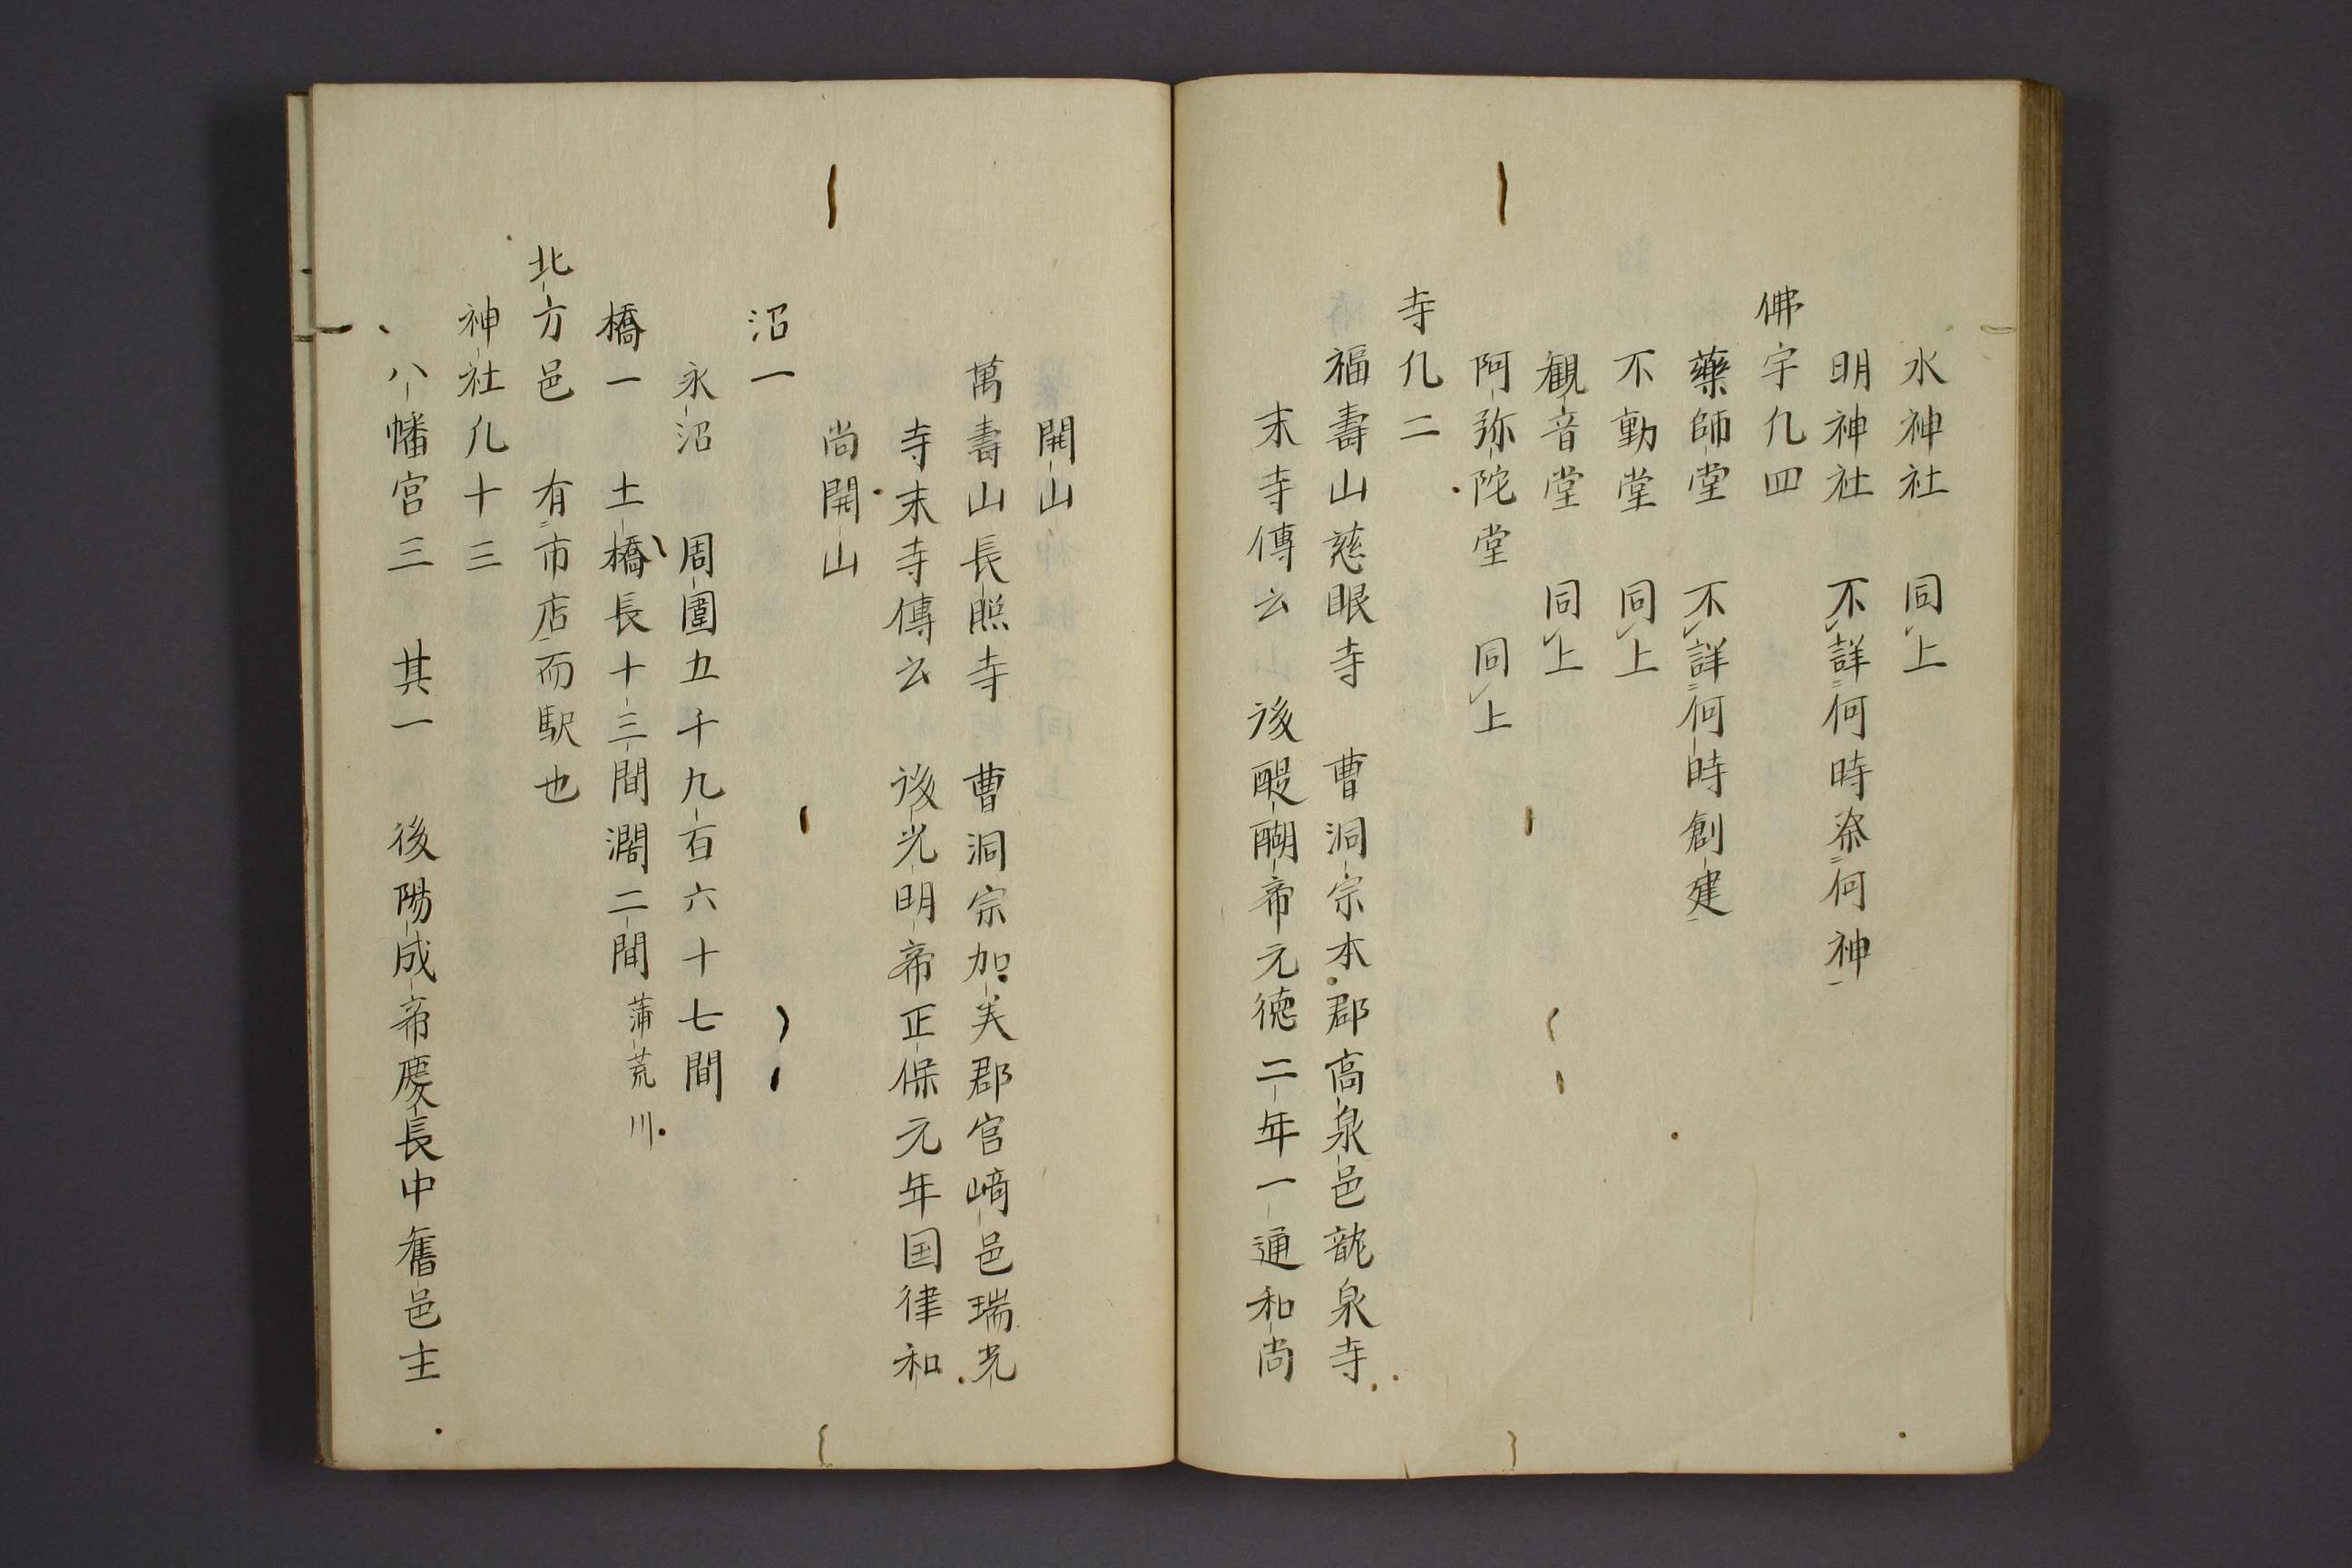 水神社　同上
明神社　不詳何時祭何神
佛宇凡四
藥師堂　不詳何時創建
不動堂　同上
観音堂　同上
阿弥陀堂　同上
寺凡二
福壽山慈眼寺　曹洞宗本郡高泉邑龍泉寺
末寺傳云　後醍醐帝元徳二年一通和尚
開山
萬壽山長照寺　曹洞宗加美郡宮﨑邑瑞光
寺末寺傳云　後光明帝正保元年国律和
尚開山
沼一
永沼　周圍五千九百六十七間
橋一　土橋長十三間濶二間蒲荒川
北方邑　有市店而駅也
神社凡十三
八幡宮三　其一　後陽成帝慶長中舊邑主